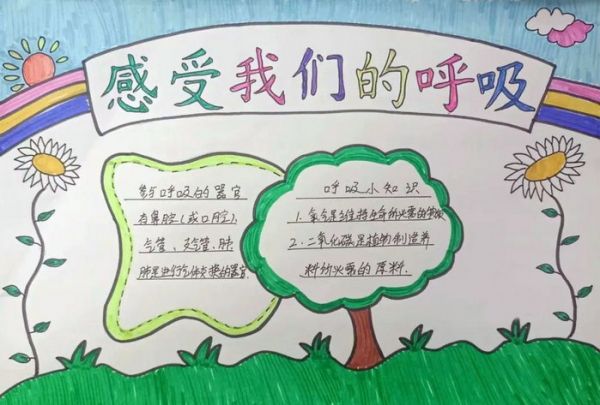 感受我们的呼吸
参与呼吸的器官
有鼻腔(或口腔)、
气管、支气管、肺
肺是进行气体交换的器官.
呼吸小知识
1.氧气是维持生命所必需的
2.二氧化碳是植物制造养
料所必需的原料.